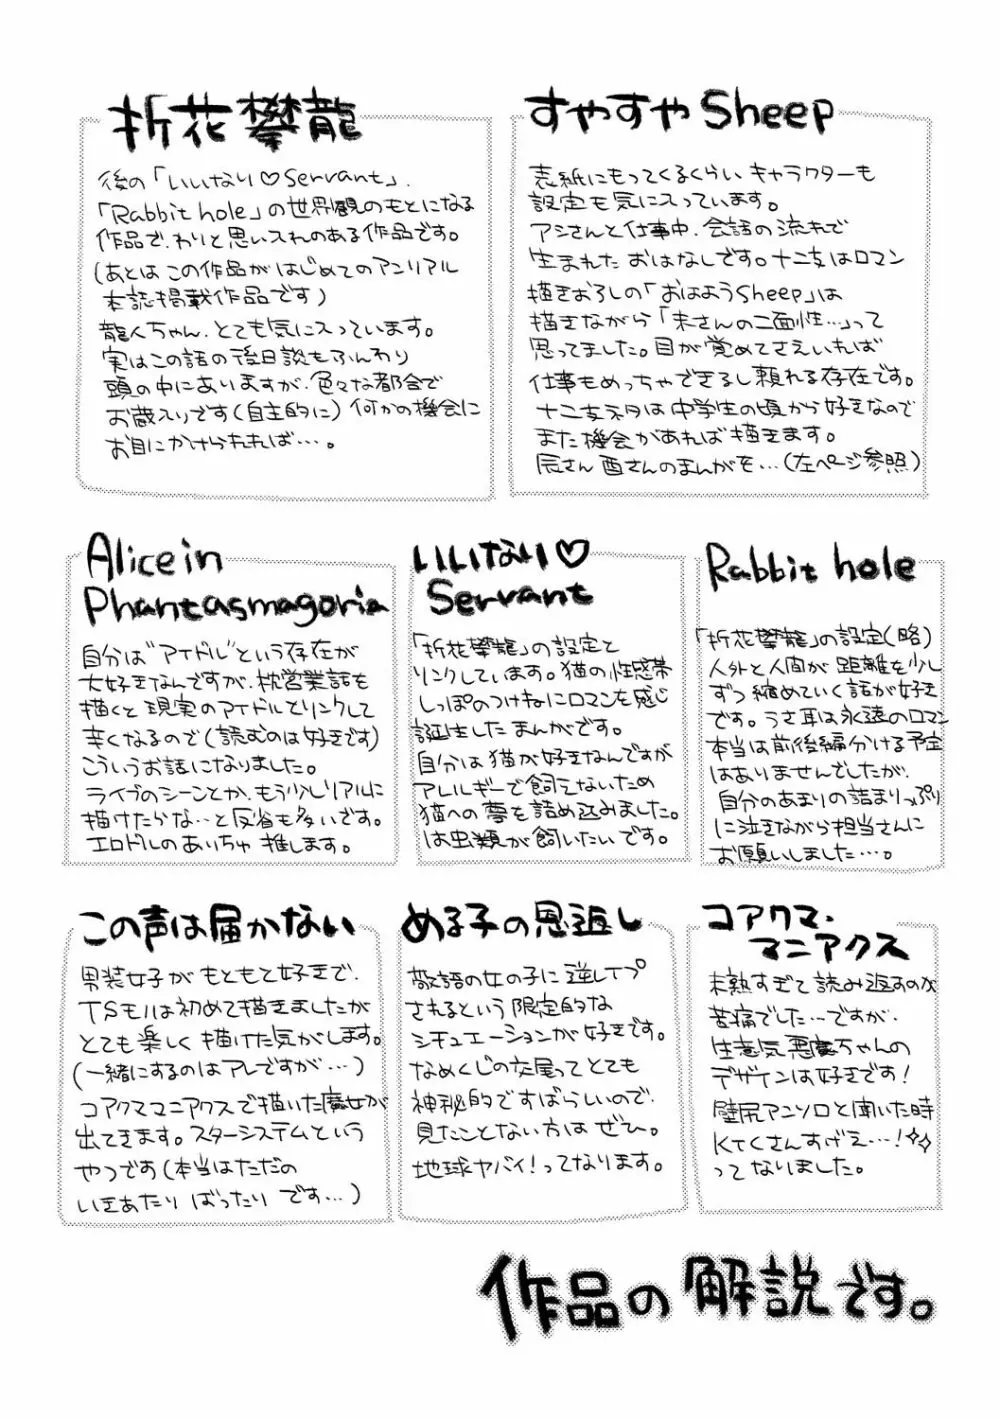 折花攀龍
後の「いいなり♡Servant」.
「Rabbit hole」の世界観のもとになる
作品で、わりと思い入れのある作品です。
(あとは この作品が はじめてのアンリアル
本誌掲載作品です)
龍人ちゃん、とても気に入っています。
実はこの話の後日談もふんわり
頭の中にありますが、色々な都合で
お蔵入りです(自主的に) 何かの機会に
お目にかけられれば…。
すやすや Sheep
表紙にもってくるくらい キャラクターも
設定も気に入っています。
アシさんと仕事中、会話の流れで
生まれた おはなしです。十二支はロマン
描きおろしの「おはようSheep」は
描きながら「未さんの二面性…」って
思ってました。目が覚めてさえいれば
仕事もめっちゃできるし頼れる存在です。
十二支ネタは中学生の頃から好きなので
また機会があれば描きます。
辰さん 酉さんのまんがを…(左ページ参照)
Alice in
Phantasmagoria
自分は"アイドル"という存在が
大好きなんですが、枕営業話を
描くと現実のアイドルとリンクして
辛くなるので(読むのは好きです)
こういうお話になりました。
ライブのシーンとか、もう少しリアルに
描けたらな…と反省も多いです。
エロドルのありちゃ 推します。
いいなり♡
Servant
「折花攀龍」の設定と
リンクしています。猫の性感帯
しっぽのつけねにロマンを感じ
誕生したまんがです。
自分は猫が好きなんですが
アレルギーで飼えないため
猫への夢を詰め込みました。
は虫類が飼いたいです。
Rabbit hole
「折花攀龍」の設定(略)
人外と人間が距離を少し
ずつ縮めていく話が好き
です。うさ耳は永遠のロマン
本当は前後編分ける予定
はありませんでしたが、
自分のあまりの詰まりっぷり
に泣きながら担当さんに
お願いしました…。
この声は届かない
男装女子が もともと好きで、
TSモノは初めて描きましたが
とても楽しく描けた気がします。
(一緒にするのはアレですが…)
コアクママニアクスで描いた魔女が
出てきます。スターシステムという
やつです(本当はただの
いきあたり ばったり です…)
める子の恩返し
敬語の女の子に逆レイプ
されるという限定的な
シチュエーションが好きです。
なめくじの交尾ってとても
神秘的ですばらしいので、
見たことない方は ぜひ。
地球ヤバイ!ってなります。
コアクマ・
マニアクス
未熟すぎて読み返すのが
苦痛でした…ですが、
生意気悪魔ちゃんの
デザインは好きです!
壁尻アンソロと聞いた時
KTCさんすげえ…!✧✧
ってなりました。
作品の解説です。